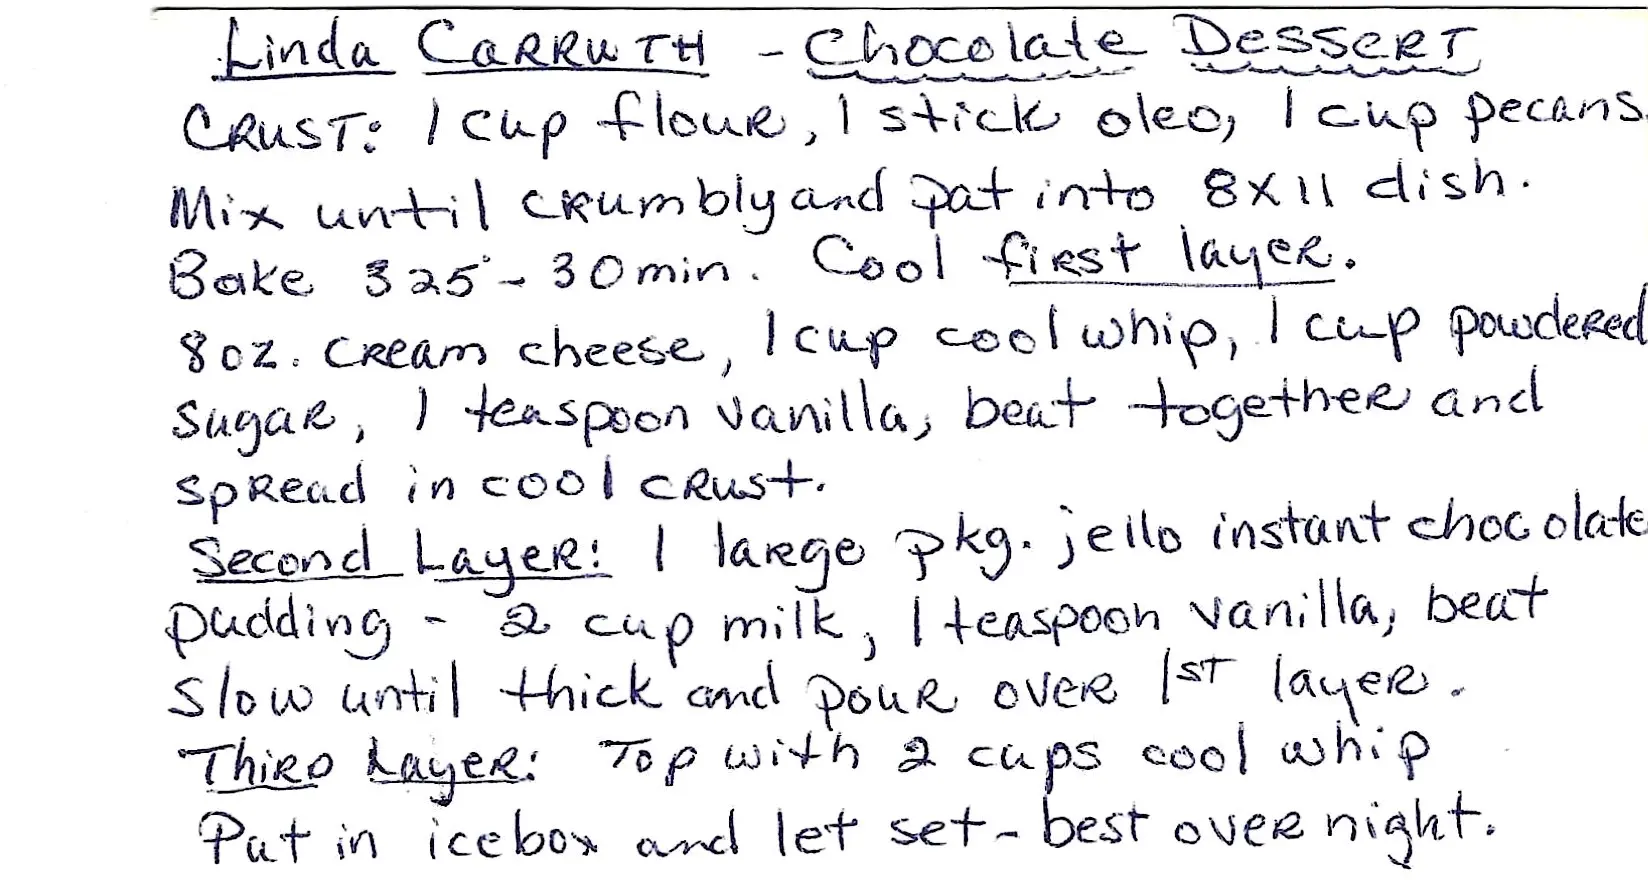 Linda Carruth - Chocolate Dessert
Crust: 1 cup flour, 1 stick oleo, 1 cup pecans.
Mix until crumbly and pat into 8x11 dish.
Bake 325° - 30 min. Cool first layer.
8 oz. cream cheese, 1 cup cool whip, 1 cup powdered
sugar, 1 teaspoon vanilla, beat together and
spread in cool crust.
Second Layer: 1 large pkg. jello instant chocolate
pudding - 2 cup milk, 1 teaspoon vanilla, beat
slow until thick and pour over 1st layer.
Third Layer: Top with 2 cups cool whip
Put in icebox and let set - best over night.